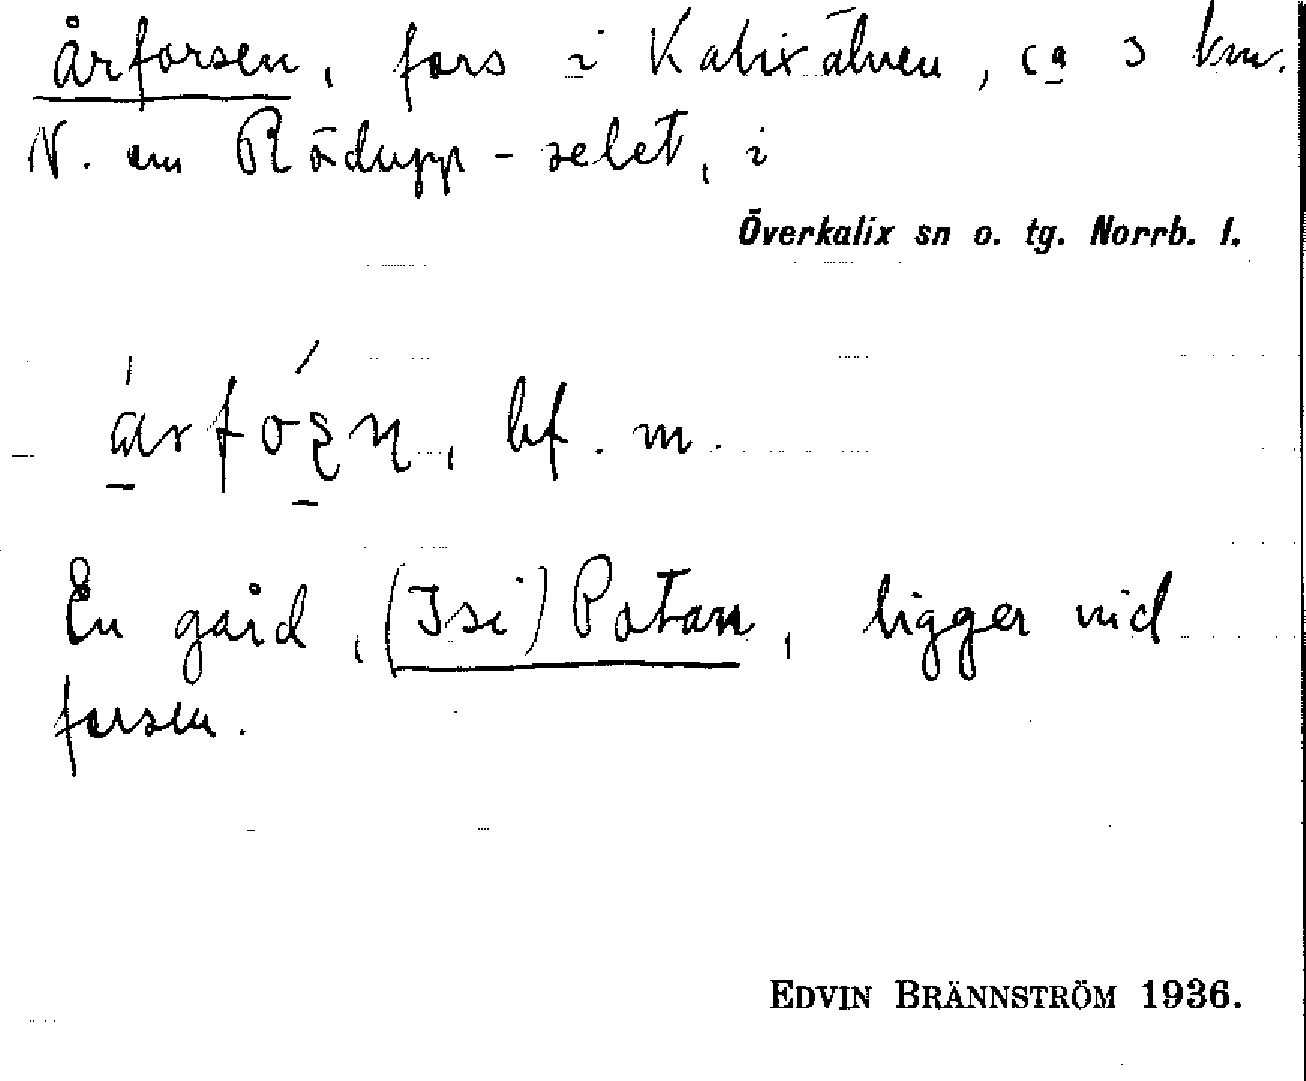 årforsen, fors i Kalixälven, ca 3 km.
N. om Rödupp-selet, i
Överkalix sn o. tg. Norrb. l.
bf. m.
En gård, (Isi) Potan, ligger vid
forsen.
EDVIN BRÄNNSTRÖM 1936.